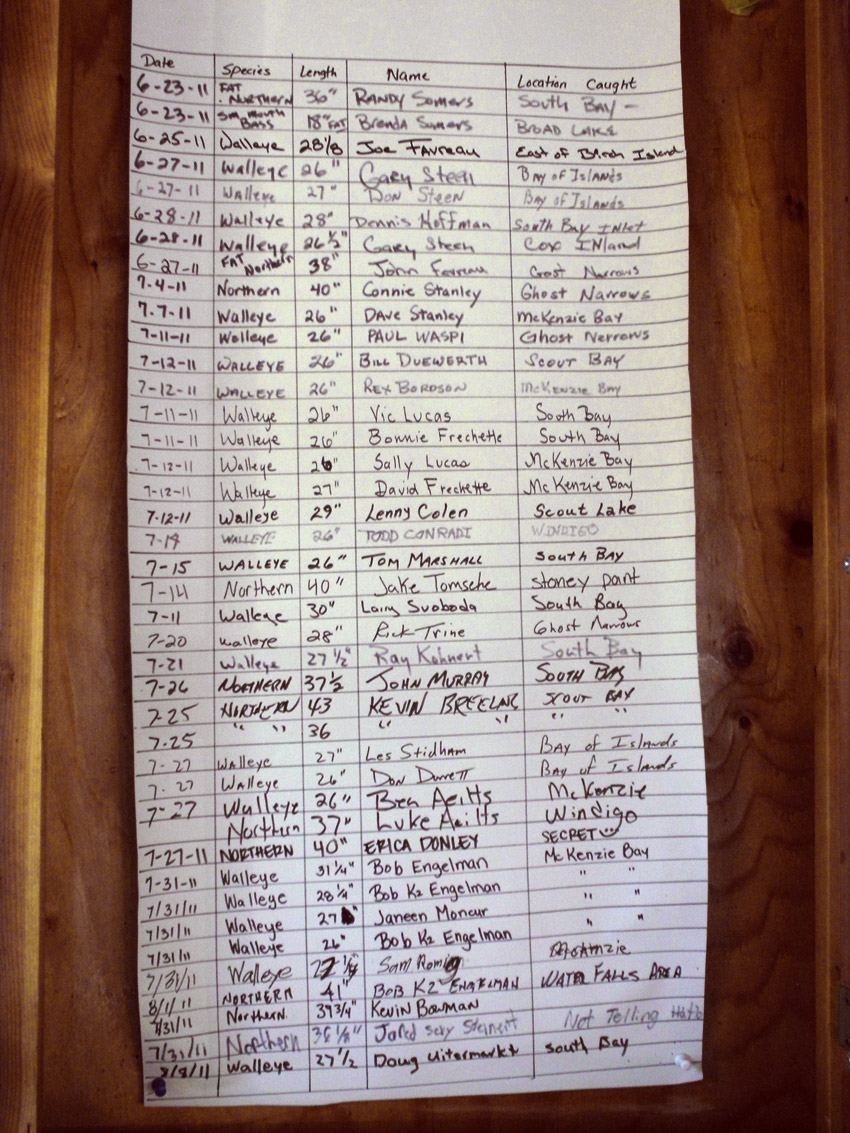 Date Species Length Name Location Caught
6-23-11 FAT NORTHERN 36" RANDY Somers South BAY -
6-23-11 Smmouth BASS 18" FAT Brenda Somers BROAD LAKE
6-25-11 Walleye 28 1/8 Joe Favreau East of Birch Island
6-27-11 Walleye 26" Gary Steen Bay of Islands
6-27-11 Walleye 27" Don Steen Bay of Islands
6-28-11 Walleye 28" Dennis Hoffman South Bay INlet
6-28-11 Walleye 26 1/2" Gary Steen Cox INland
6-27-11 FAT Northern 38" John Favreau Gost Narrows
7-4-11 Northern 40" Connie Stanley Ghost Narrows
7-7-11 Walleye 26" Dave Stanley McKenzie Bay
7-11-11 Walleye 26" PAUL WASPI Ghost Nerrows
7-12-11 WALLEYE 26" BILL DUEWERTH SCOUT BAY
7-12-11 WALLEYE 26" REX BORDSON McKENZIE BAY
7-11-11 Walleye 26" Vic Lucas South Bay
7-11-11 Walleye 26" Bonnie Frechette South Bay
7-12-11 Walleye 26" Sally Lucas McKenzie Bay
7-12-11 Walleye 27" David Frechette McKenzie Bay
7-12-11 Walleye 29" Lenny Colen Scout Lake
7-14 WALLEYE 26" TODD CONRADI WINDIGO
7-15 WALLEYE 26" TOM MARSHALL South BAY
7-14 Northern 40" Jake Tomsche stoney point
7-11 Walleye 30" Larry Svoboda South Bay
7-20 walleye 28" Rick Trine Ghost Narrows
7-21 Walleye 27 1/2" Ray Kohnert South Bay
7-26 NORTHERN 37 1/2 JOHN MURRAY SOOTH BAY
7-25 NORTHERN 43 KEVIN BREELING SCOUT BAY
7-25 " " 36 " " " "
7-27 Walleye 27" Les Stidham Bay of Islands
7-27 Walleye 26" Don Durrett Bay of Islands
7-27 Walleye 26" Ben Aeilts McKenzie
Northern 37" Luke Aeilts Windigo
7-27-11 NORTHERN 40" ERICA DONLEY SECRET
7-31-11 Walleye 31 1/4" Bob Engelman McKenzie Bay
7/31/11 Walleye 28 1/4" Bob K2 Engelman " "
7/31/11 Walleye 27 " Janeen Moncur " "
7/31/11 Walleye 26" Bob K2 Engelman " "
7/31/11 Walleye 27 1/4" Sam Romig
8/1/11 NORTHERN 41" BOB K2 ENGELMAN WATER FALLS AREA
7/31/11 Northern 39 3/4" Kevin Bowman
7/31/11 Northern 36 1/8" Jared Sexy Steinert Not Telling
8/8/11 Walleye 27 1/2 Doug Uitermarkt South Bay